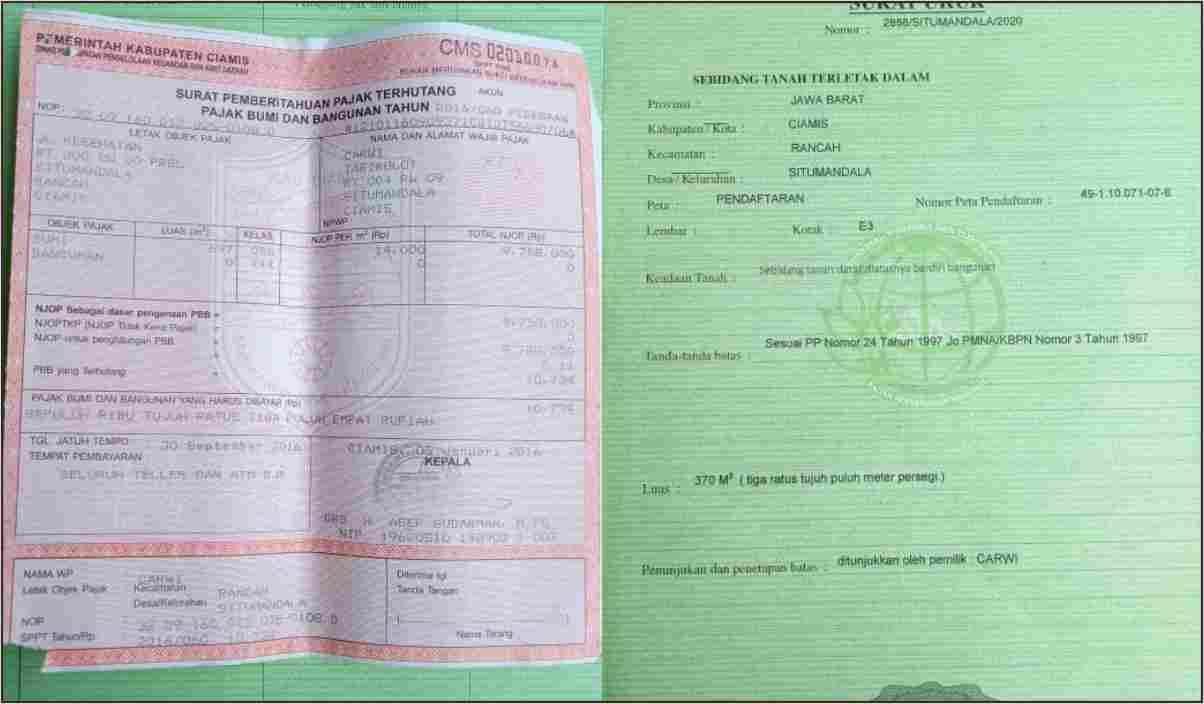 PEMERINTAH KABUPATEN CIAMIS
CMS
SURAT PEMBERITAHUAN PAJAK TERHUTANG
AKUN
PAJAK BUMI DAN BANGUNAN TAHUN 2016
NOP :
LETAK OBJEK PAJAK
NAMA DAN ALAMAT WAJIB PAJAK
JL. KESEHATAN
SITUMANDALA
RANCAH
CIAMIS
CARWI
TARIKOLOT
RT 004 RW 09
SITUMANDALA
CIAMIS
NPWP
OBJEK PAJAK
LUAS (m²)
KELAS
NJOP PER m² (Rp)
TOTAL NJOP (Rp)
BUMI
14.000
BANGUNAN
0
0
0
NJOP Sebagai dasar pengenaan PBB =
NJOPTKP (NJOP Tidak Kena Pajak) =
NJOP untuk penghitungan PBB
PBB yang Terhutang =
PAJAK BUMI DAN BANGUNAN YANG HARUS DIBAYAR (Rp)
SEPULUH RIBU TUJUH RATUS TIGA PULUH EMPAT RUPIAH
TGL. JATUH TEMPO : 30 September 2016
TEMPAT PEMBAYARAN
SELURUH TELLER DAN ATM BJB
CIAMIS, 05 Januari 2016
KEPALA
NIP.
NAMA WP : CARWI
Letak Objek Pajak Kecamatan : RANCAH
Desa/Kelurahan : SITUMANDALA
NOP
SPPT Tahun/Rp.
Diterima tgl
Tanda Tangan
Nama Terang
SURAT UKUR
Nomor : 2898/SITUMANDALA/2020
SEBIDANG TANAH TERLETAK DALAM
Provinsi : JAWA BARAT
Kabupaten / Kota : CIAMIS
Kecamatan : RANCAH
Desa / Kelurahan : SITUMANDALA
Peta : PENDAFTARAN
Nomor Peta Pendaftaran : 49-1.10.071-07-6
Lembar :
Kotak : E3
Keadaan Tanah : Sebidang tanah darat diatasnya berdiri bangunan
Tanda-tanda batas : Sesuai PP Nomor 24 Tahun 1997 Jo PMNA/KBPN Nomor 3 Tahun 1997
Luas : 370 M² ( tiga ratus tujuh puluh meter persegi )
Penunjukan dan penetapan batas : ditunjukkan oleh pemilik : CARWI